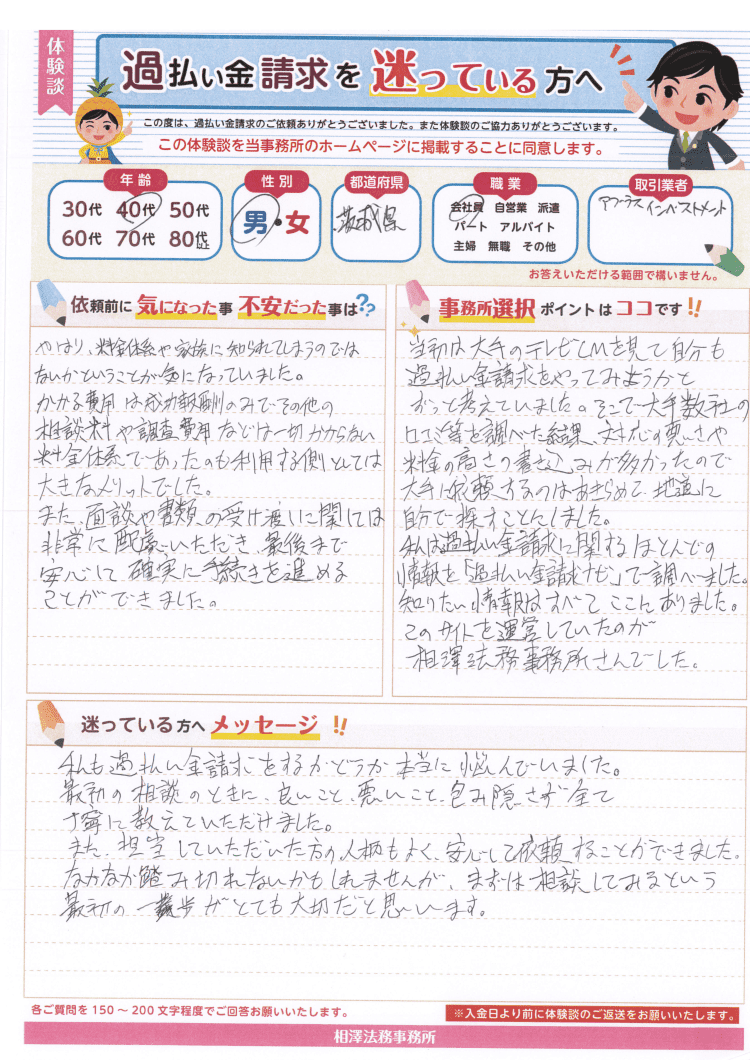 体験談
過払い金請求を迷っている方へ
この度は、過払い金請求のご依頼ありがとうございました。また体験談のご協力ありがとうございます。
この体験談を当事務所のホームページに掲載することに同意します。
年齢
30代 40代 50代
60代 70代 80代以上
性別
男・女
都道府県
茨城県
職業
会社員 自営業 派遣
パート アルバイト
主婦 無職 その他
取引業者
アペンタクル インベストメント
お答えいただける範囲で構いません。
依頼前に気になった事 不安だった事は??
やはり、料金体系や家族に知られてしまうのでは
ないかということが気になっていました。
かかる費用は成功報酬のみでその他の
相談料や調査費用などは一切かからない
料金体系であったのも利用する側としては
大きなメリットでした。
また、面談や書類の受け渡しに関しては
非常に配慮いただき、最後まで
安心して確実に手続きを進める
ことができました。
事務所選択ポイントはココです!!
当初は大手のテレビCMを見て自分も
過払い金請求をやってみようかと
ずっと考えていました。そこで大手数社の
口コミ等を調べた結果、対応の悪さや
料金の高さの書き込みが多かったので
大手に依頼するのはあきらめて地道に
自分で探すことにしました。
私は過払い金請求に関するほとんどの
情報を「過払い金請求ナビ」で調べました。
知りたい情報はすべてここにありました。
このサイトを運営していたのが
相澤法務事務所さんでした。
迷っている方へメッセージ!!
私も過払い金請求をするかどうか本当に悩んでいました。
最初の相談のときに、良いこと、悪いこと、包み隠さず全て
丁寧に教えていただけました。
また、担当していただいた方の人柄もよく、安心して依頼することができました。
なかなか踏み切れないかもしれませんが、まずは相談してみるという
最初の一歩がとても大切だと思います。
各ご質問を150～200文字程度でご回答お願いいたします。
※入金日より前に体験談のご返送をお願いいたします。
相澤法務事務所